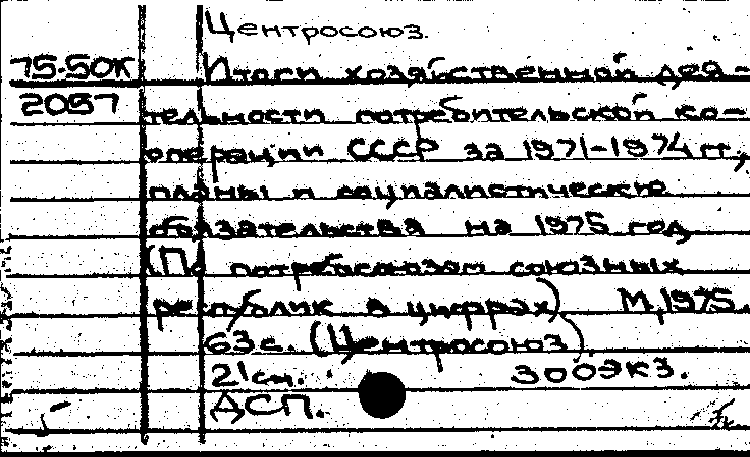 Центросоюз.
75-50К Итоги хозяйственной дея-
2057 тельности потребительской ко-
операции СССР за 1971-1974 гг.,
планы и социалистические
обязательства на 1975 год
(По потребсоюзам союзных
республик в цифрах). М., 1975.
63 с. (Центросоюз).
21 см. 300 экз.
ДСП.